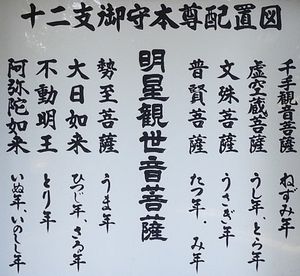 十二支御守本尊配置図
千手観音菩薩 ねずみ年
虚空蔵菩薩 うし年、とら年
文殊菩薩 うさぎ年
普賢菩薩 たつ年、み年
明星観世音菩薩
勢至菩薩 うま年
大日如来 ひつじ年、さる年
不動明王 とり年
阿弥陀如来 いぬ年、いのしし年